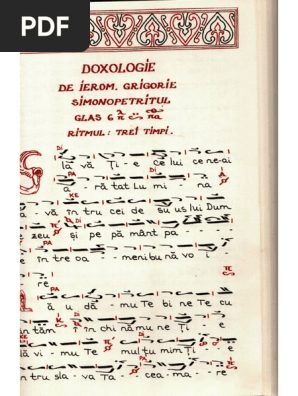 PDF
DOXOLOGIE
DE IEROM. GRIGORIE
SIMONOPETRITUL
GLAS 6
RITMUL: TREI TIMPI.
lă vă Ți - e Ce lui ce ne-ai
a - ră tat Lu mi - na
vă în tru cei de su us lui Dum
zeu și pe pă mânt pa
e în tre oa - meni bu nă vo i
re
ă u dă - mu Te bi ne Te cu
în chi nă mu ne Ți - e
lă vi - mu Te mul țu mim Ți - e
n tru sla - va Ta cea ma - re